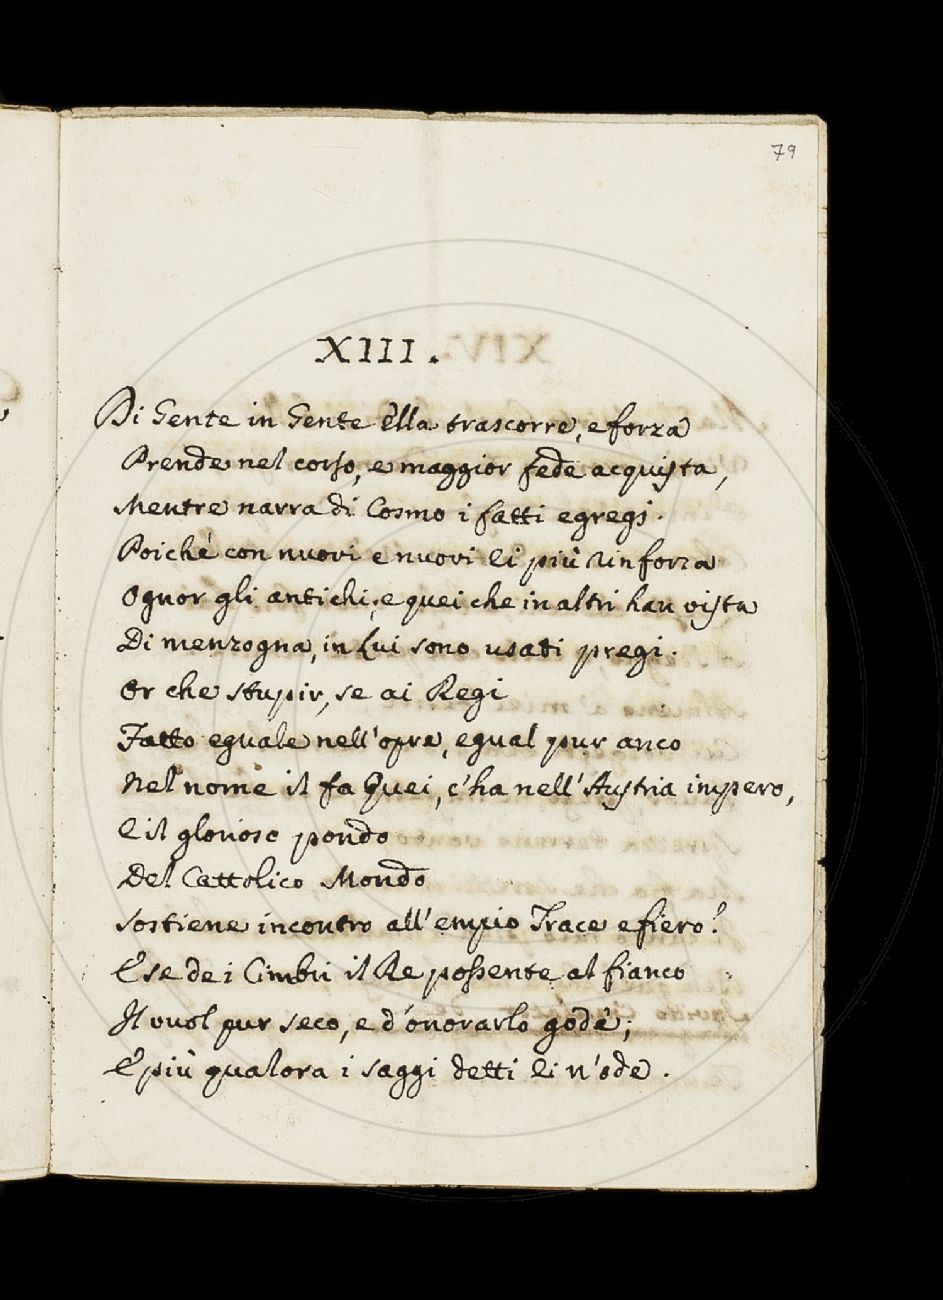 79
XIII.
Di Gente in Gente Ella trascorre, e forza
Prende nel corso, e maggior fede acquista,
Mentre narra di Cosmo i fatti egregj.
Poichè con nuovi e nuovi Ei più rinforza
Ognor gli antichi; e quei che in altri han vista
Di menzogna, in Lui sono usati pregi.
Or che stupir, se ai Regi
Fatto eguale nell'opre, egual pur anco
Nel nome il fa Quei, c'ha nell'Austria impero,
E il glorioso pondo
Del Cattolico Mondo
Sostiene incontro all'empio Trace e fiero?
E se dei Cimbri il Re possente al fianco
Il vuol pur seco, e d'onorarlo gode;
E più qualora i saggi detti Ei n'ode.